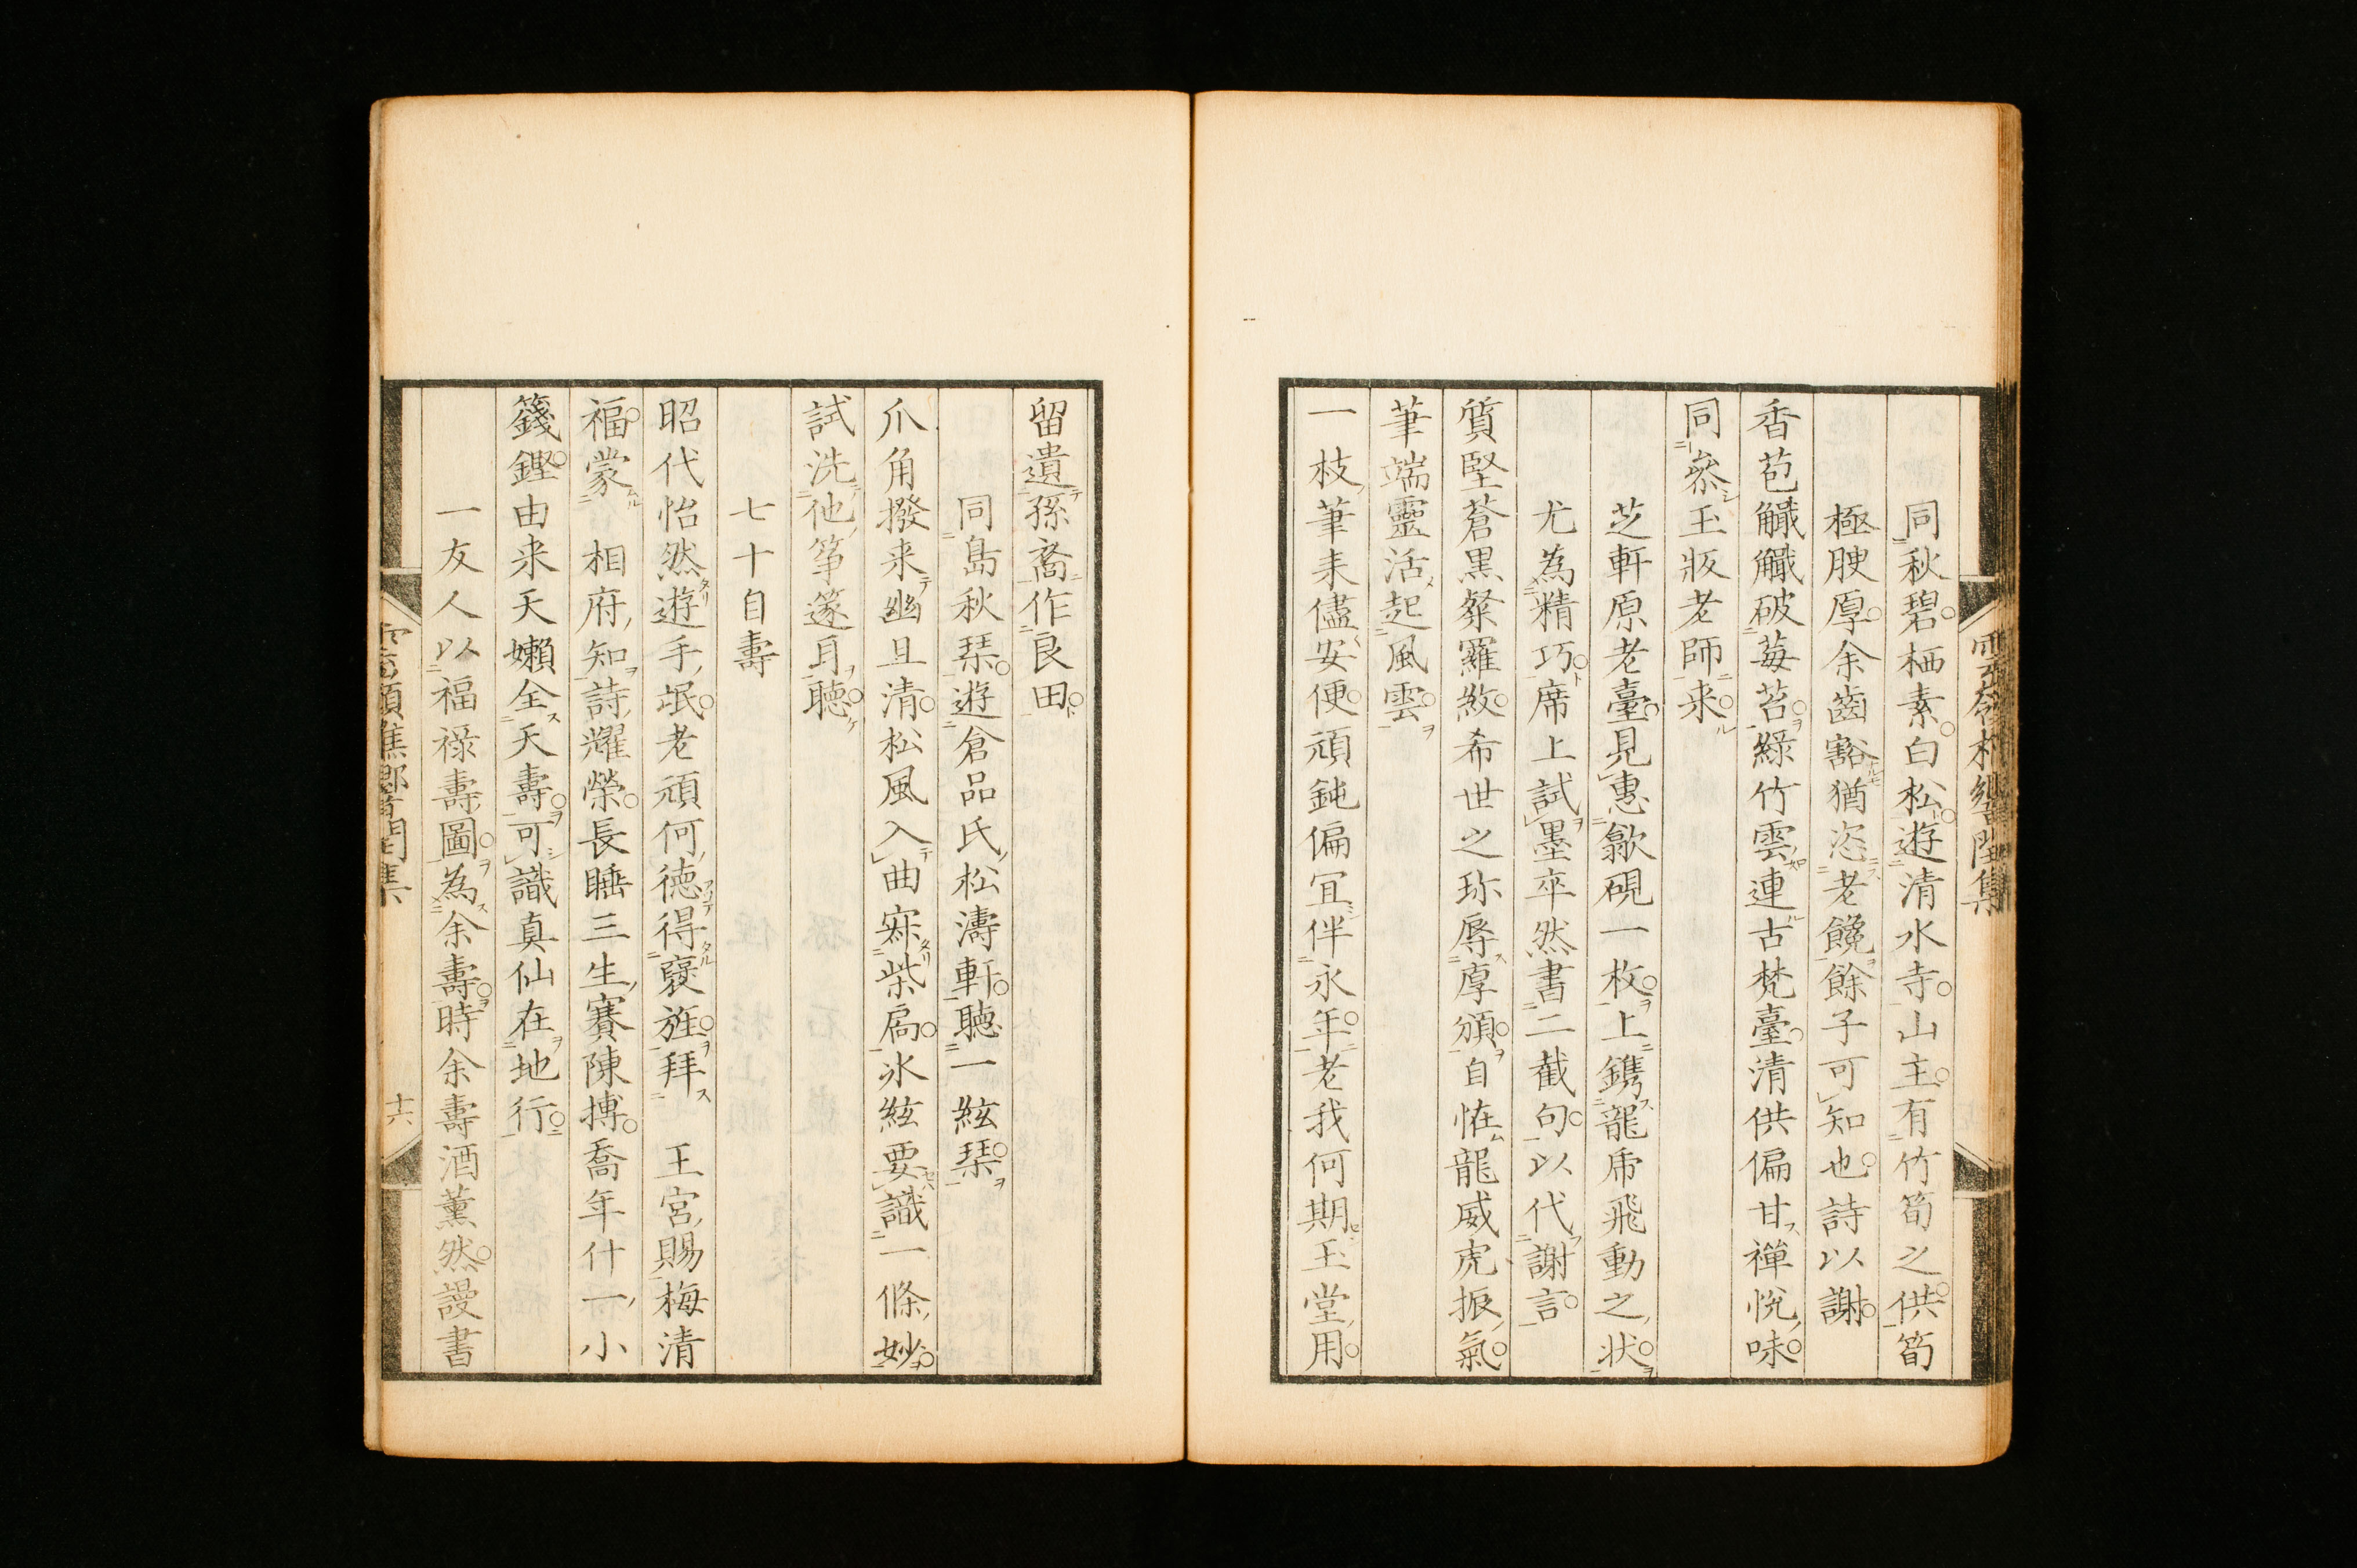 同秋碧栖素白松遊清水寺山主有竹筍之供筍
極腴厚余齒豁猶恣老饞餘子可知也詩以謝
香苞觿觿破莓苔綠竹雲連古梵臺清供偏甘禪悅味
同叅玉版老師来
芝軒原老臺見惠歙硯一枚上鐫龍虎飛動之狀
尤為精巧席上試墨卒然書二截句以代謝言
質堅蒼黒粲羅紋希世之珎辱厚頒自恠龍威虎振氣
筆端靈活起風雲
一枝筆耒儘安便頑鈍偏冝伴永年老我何期玉堂用
留遺孫裔作良田
同島秋琹遊倉品氏松濤軒聽一絃琹
爪角撥来幽且清松風入曲寐柴扃氷絃要識一條妙
試洗他箏篴耳聽
七十自壽
昭代怡然遊手氓老頑何德得襃旌拜　王宮賜梅清
福蒙　相府知詩耀榮長睡三生賽陳摶喬年什一小
籛鏗由来天嬾全天壽可識真仙在地行
一友人以福祿壽圖為余壽時余壽酒薰然謾書
十六